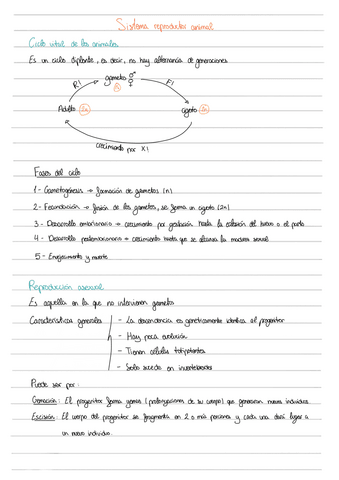 Sistema reproductor animal
Ciclo vital de los animales
Es un ciclo diplonte, es decir, no hay alternancia de generaciones
gameto ♂
♀
R!
F!
n
Adulto 2n
cigoto 2n
crecimiento por X!
Fases del ciclo
1- Gametogénesis → formación de gametos (n)
2- Fecundación → fusión de los gametos, se forma un cigoto (2n)
3 - Desarrollo embrionario → crecimiento por gestación hasta la eclosión del huevo o el parto
4 - Desarrollo postembrionario → crecimiento hasta que se alcanza la madurez sexual
5 - Envejecimiento y muerte
Reproducción asexual
Es aquella en la que no intervienen gametos
Características generales
- La descendencia es genéticamente idéntica al progenitor
- Hay poca evolución
- Tienen células totipotentes
- Solo sucede en invertebrados
Puede ser por:
Gemación: El progenitor forma yemas (prolongaciones de su cuerpo) que generarán nuevos individuos
Escisión: El cuerpo del progenitor se fragmenta en 2 o más porciones y cada una dará lugar a
un nuevo individuo.